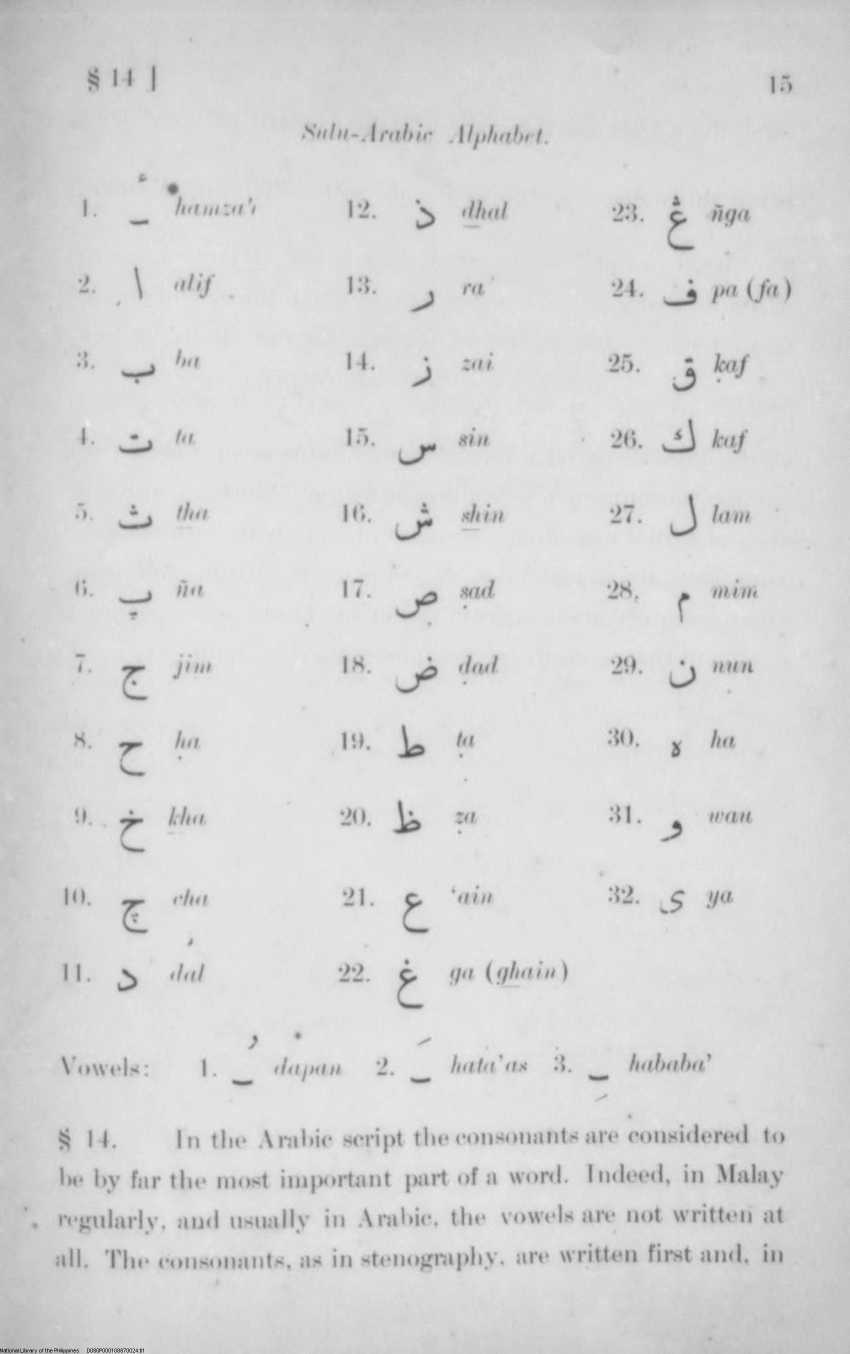 § 14 ]
15
Sulu-Arabic Alphabet.
1. ـٔ hamza'
2. ا alif
3. ب ba
4. ت ta
5. ث tha
6. پ ña
7. ج jim
8. ح ḥa
9. خ kha
10. چ cha
11. د dal
12. ذ dhal
13. ر ra
14. ز zai
15. س sin
16. ش shin
17. ص ṣad
18. ض ḍad
19. ط ṭa
20. ظ ẓa
21. ع ‘ain
22. غ ga (ghain)
23. ڠ ñga
24. ف pa (fa)
25. ق ḳaf
26. ك kaf
27. ل lam
28. م mim
29. ن nun
30. ه ha
31. و wau
32. ى ya
Vowels: 1. ـُ dapan 2. ـَ hata'as 3. ـِ hababa'
§ 14. In the Arabic script the consonants are considered to
be by far the most important part of a word. Indeed, in Malay
regularly, and usually in Arabic, the vowels are not written at
all. The consonants, as in stenography, are written first and, in
National Library of the Philippines